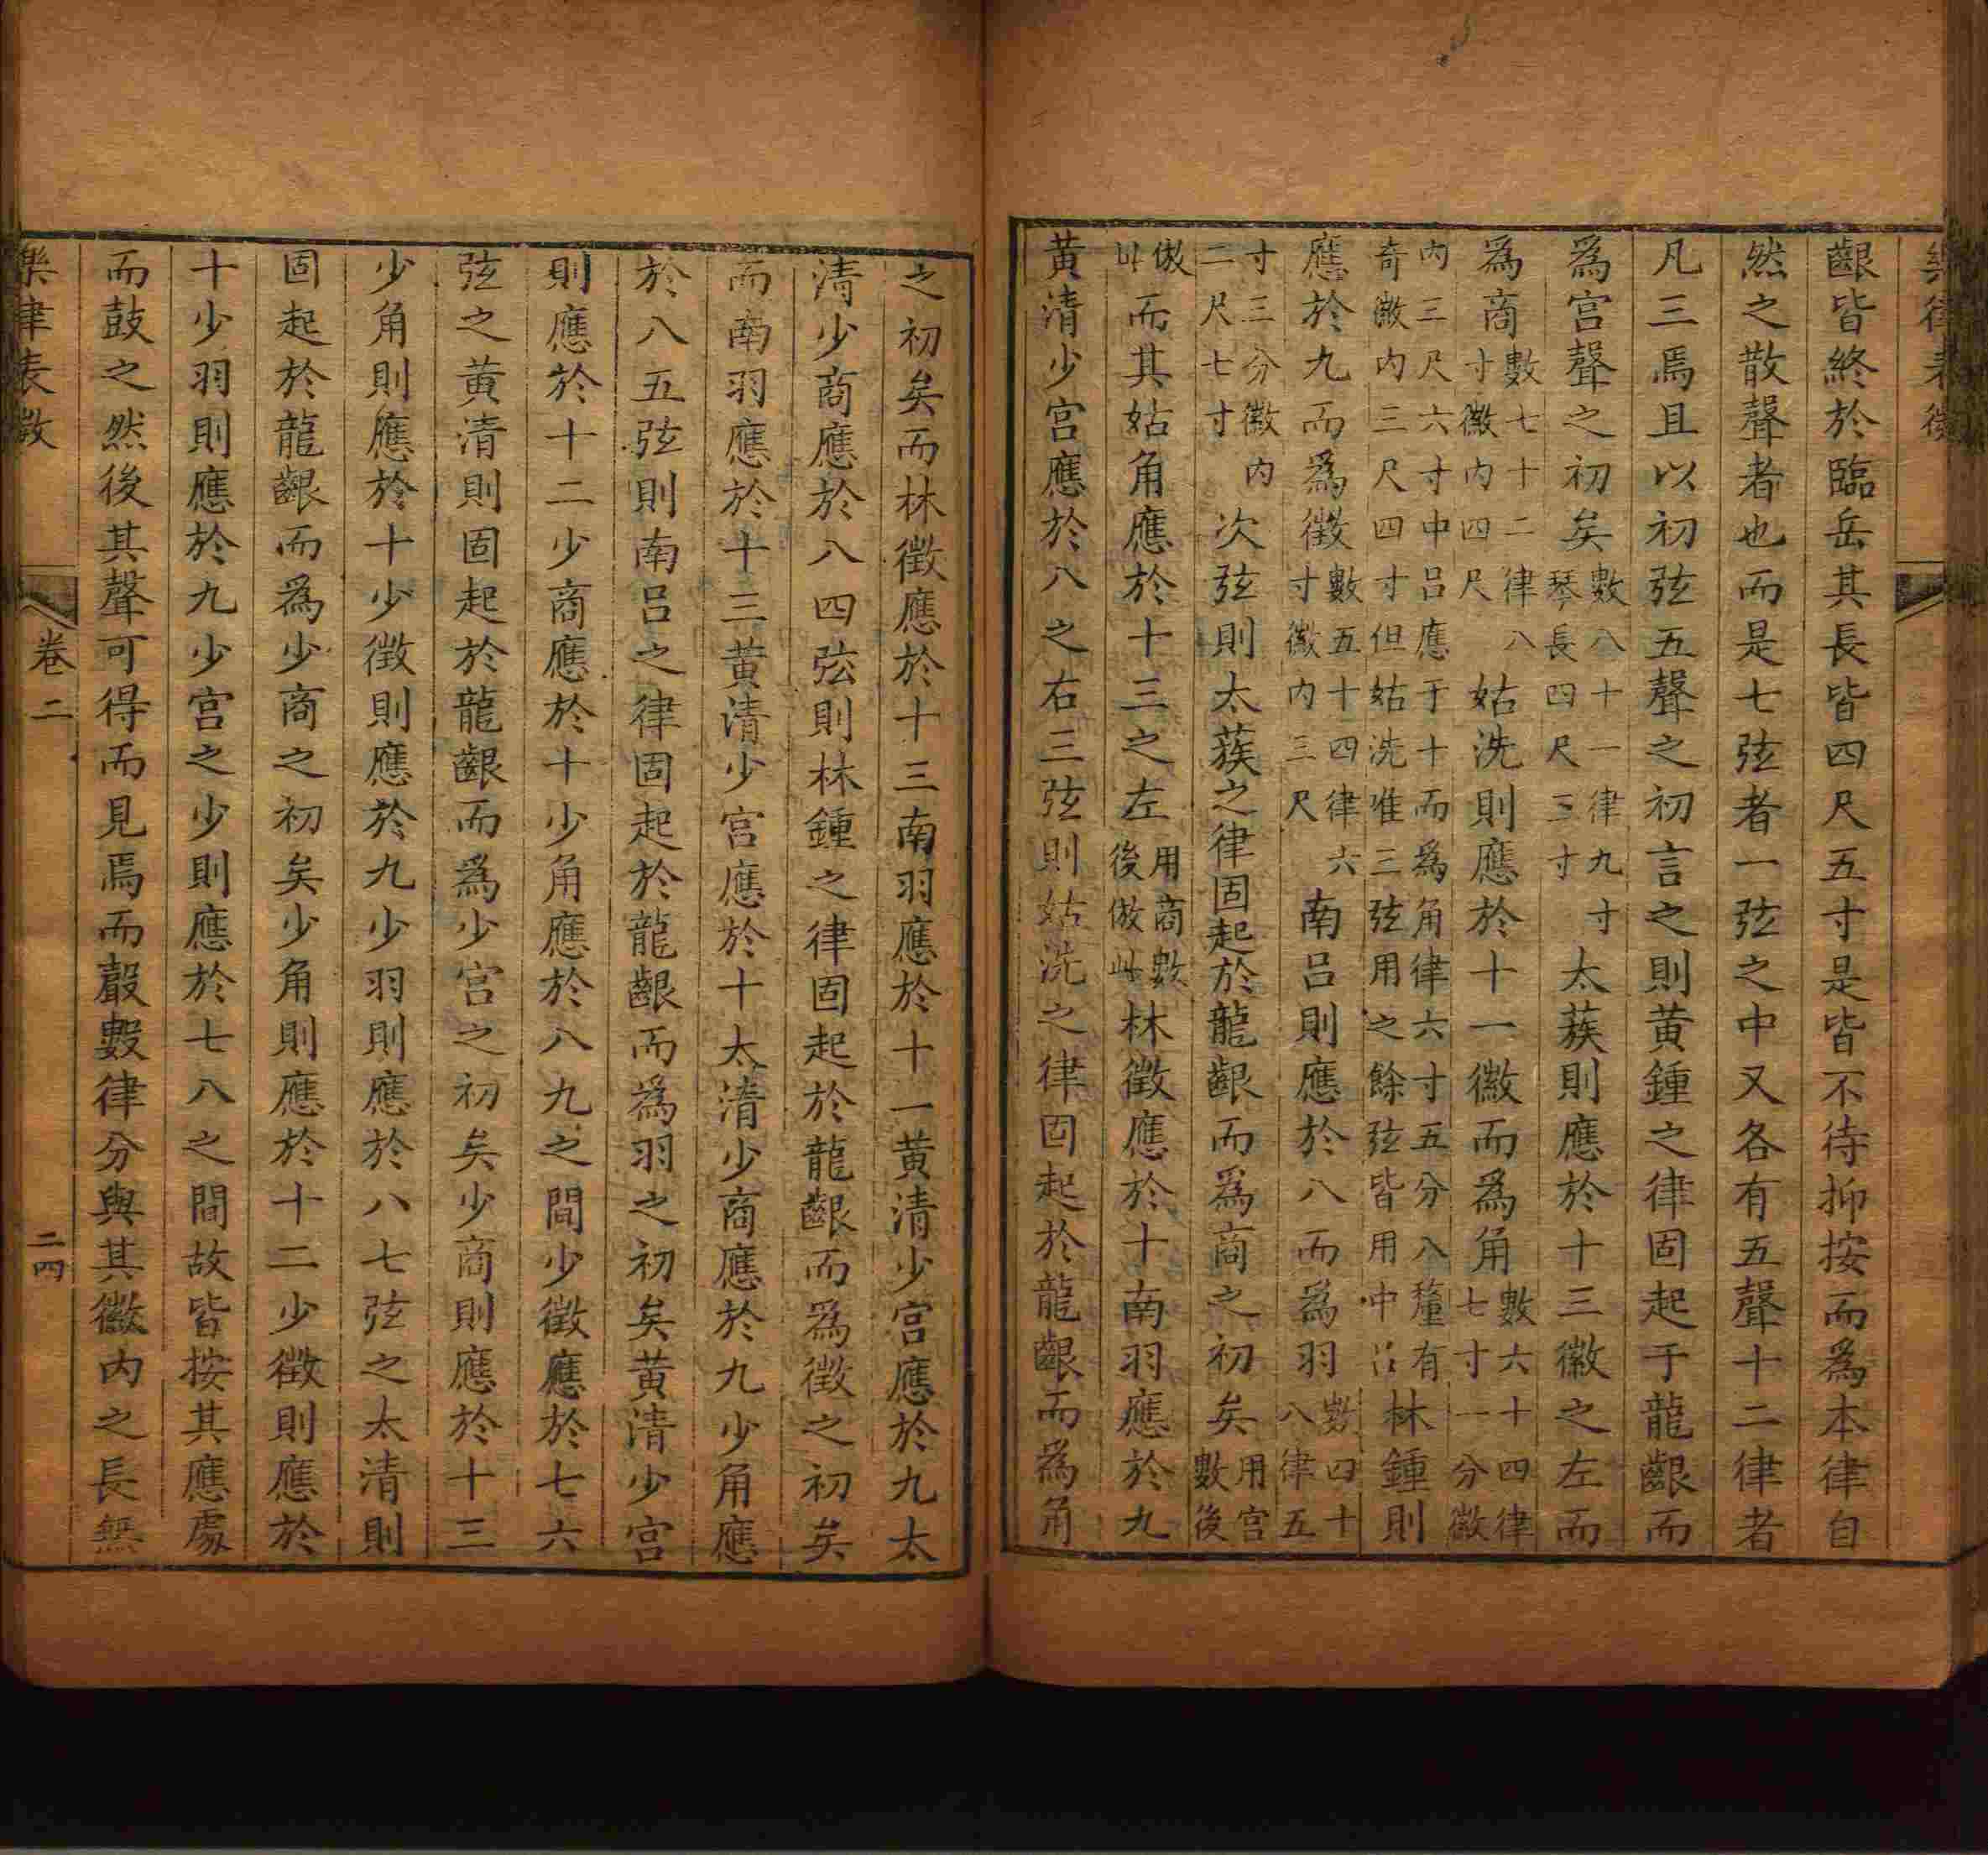 樂律表微
齦皆終於臨岳其長皆四尺五寸是皆不待抑按而為本律自
然之散聲者也而是七弦者一弦之中又各有五聲十二律者
凡三焉且以初弦五聲之初言之則黃鍾之律固起于龍齦而
為宮聲之初矣數八十一律九寸琴長四尺三寸太蔟則應於十三徽之左而
為商數七十二律八寸徽内四尺姑洗則應於十一徽而為角數六十四律七寸一分徽
内三尺六寸中吕應于十而為角律六寸五分八釐有奇徽内三尺四寸但姑洗惟三弦用之餘弦皆用中吕林鍾則
應於九而為徵數五十四律六寸徽内三尺南吕則應於八而為羽數四十八律五
寸三分徽内二尺七寸次弦則太蔟之律固起於龍齦而為商之初矣用宮數後
倣此而其姑角應於十三之左用商數後倣此林徵應於十南羽應於九
黃清少宮應於八之右三弦則姑洗之律固起於龍齦而為角
之初矣而林徵應於十三南羽應於十一黃清少宮應於九太
清少商應於八四弦則林鍾之律固起於龍齦而為徵之初矣
而南羽應於十三黃清少宮應於十太清少商應於九少角應
於八五弦則南吕之律固起於龍齦而為羽之初矣黃清少宮
則應於十二少商應於十少角應於八九之間少徵應於七六
弦之黃清則固起於龍齦而為少宮之初矣少商則應於十三
少角則應於十少徵則應於九少羽則應於八七弦之太清則
固起於龍齦而為少商之初矣少角則應於十二少徵則應於
十少羽則應於九少宮之少則應於七八之間故皆按其應處
而鼓之然後其聲可得而見焉而聲數律分與其徽内之長無
樂律表微
卷二
二四